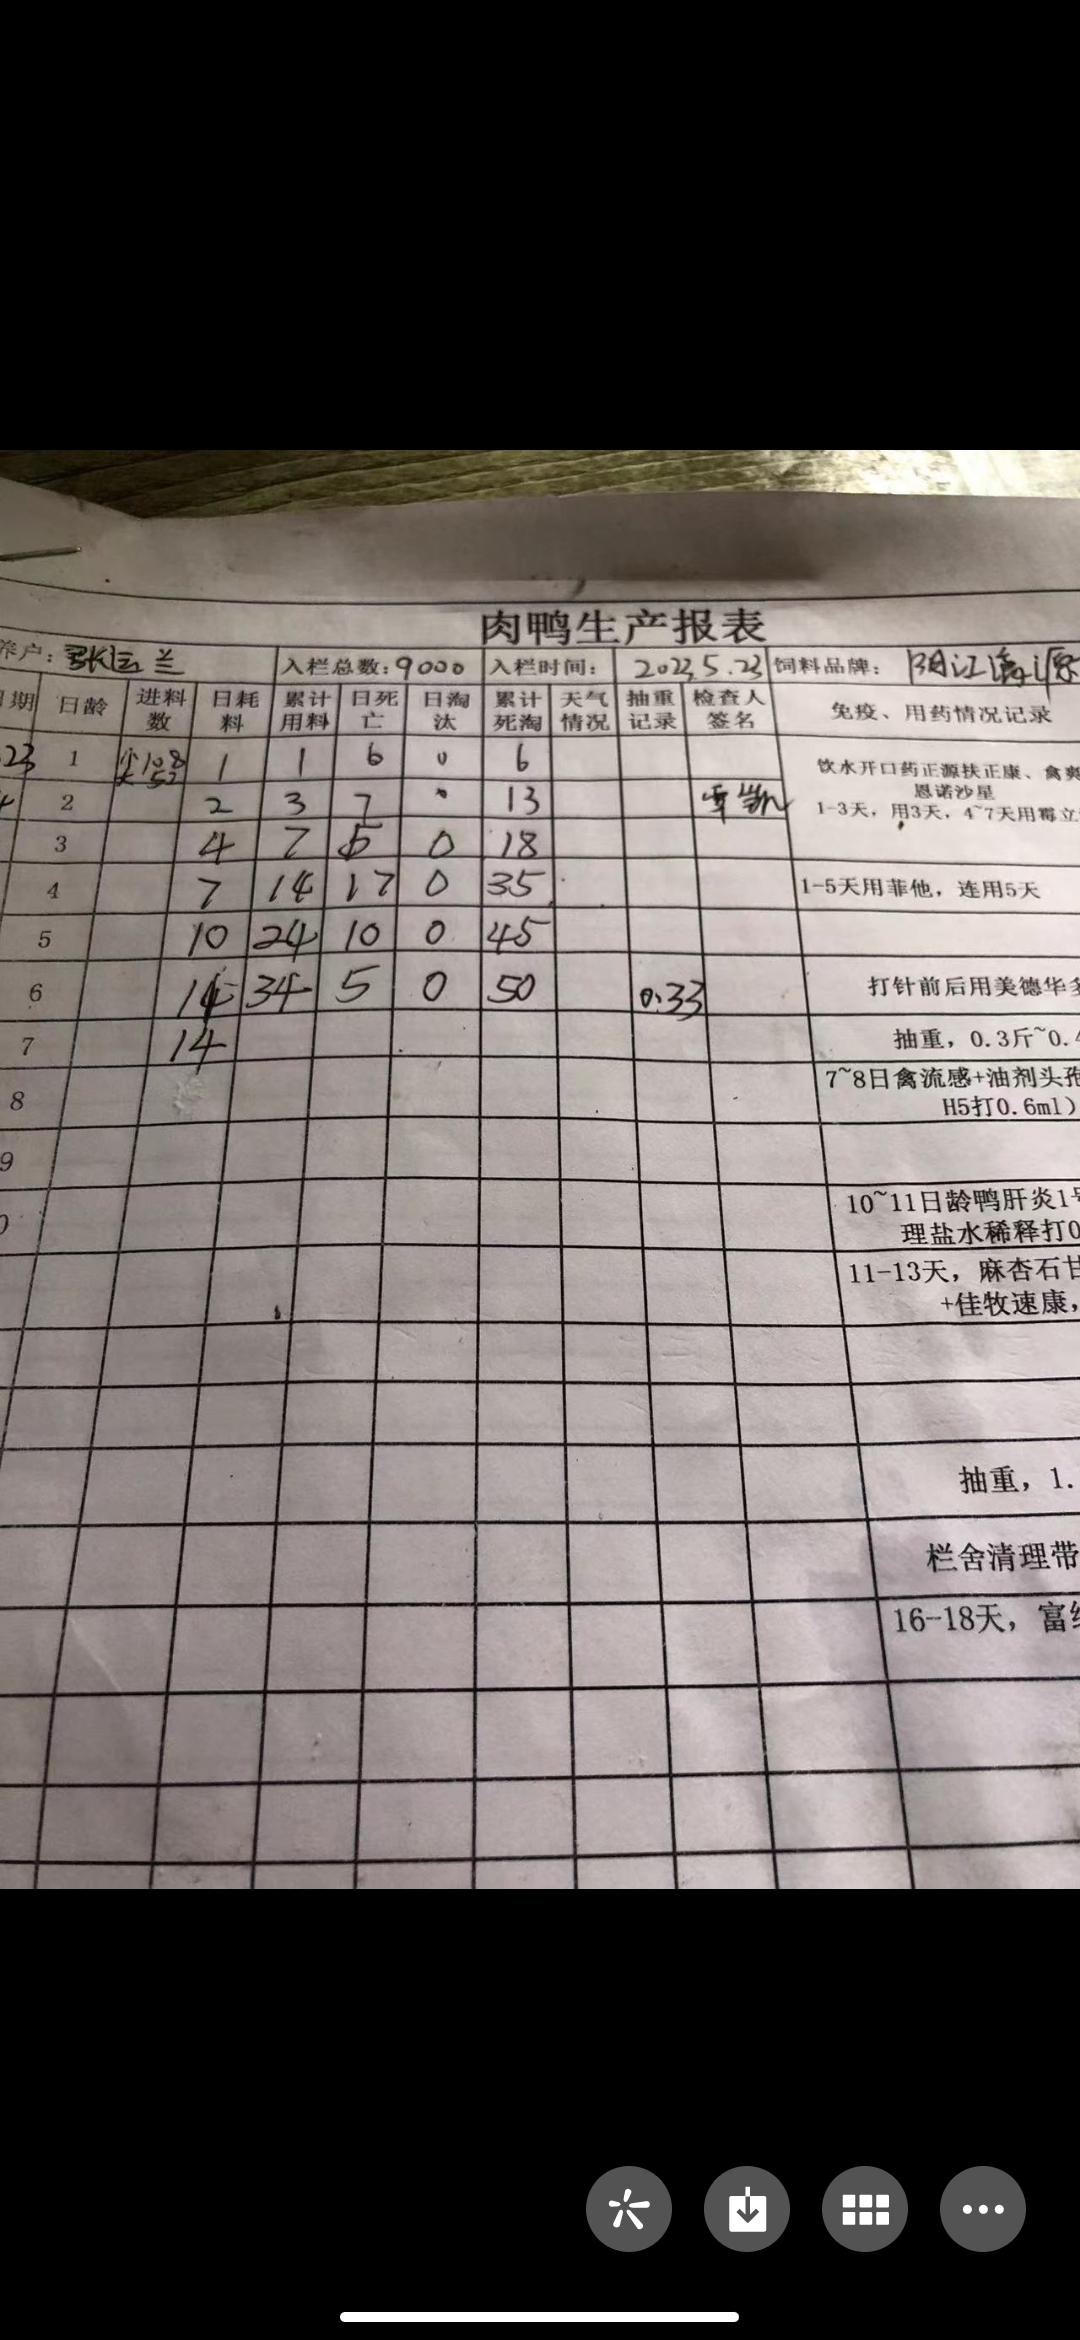 肉鸭生产报表
养户: 张 兰 入栏总数:9000 入栏时间: 2023.5.23 饲料品牌: 阳江
日期 日龄 进料数 日耗料 累计用料 日死亡 日淘汰 累计死淘 天气情况 抽重记录 检查人签名 免疫、用药情况记录
23 1 108 52 1 1 6 0 6 饮水开口药正源扶正康、禽爽
恩诺沙星
2 2 3 7 0 13 1-3天，用3天，4~7天用霉立
3 4 7 5 0 18
4 7 14 17 0 35 1-5天用菲他，连用5天
5 10 24 10 0 45
6 34 5 0 50 0.33 打针前后用美德华多
7 14 抽重，0.3斤~0.4
8 7~8日禽流感+油剂头孢
H5打0.6ml)
9
0 10~11日龄鸭肝炎1号
理盐水稀释打0
11-13天，麻杏石甘
+佳牧速康，
抽重，1.
栏舍清理带
16-18天，富